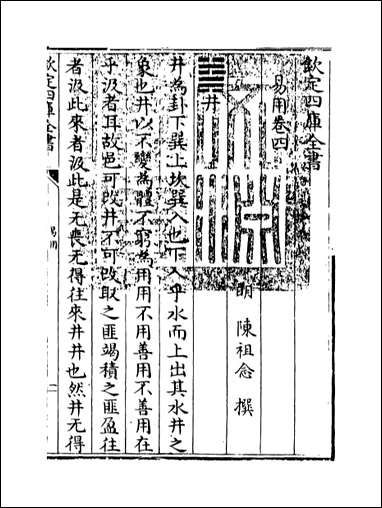 欽定四庫全書
易用卷四
明 陳祖念 撰
井
井為卦下巽上坎巽入也下入乎水而上出其水井之
象也井以不變為體不窮為用用不用善用不善用在
乎汲者耳故邑可改井不可改取之匪竭積之匪盈往
者汲此來者汲此是无喪无得往來井井也然井无得
欽定四庫全書
易用